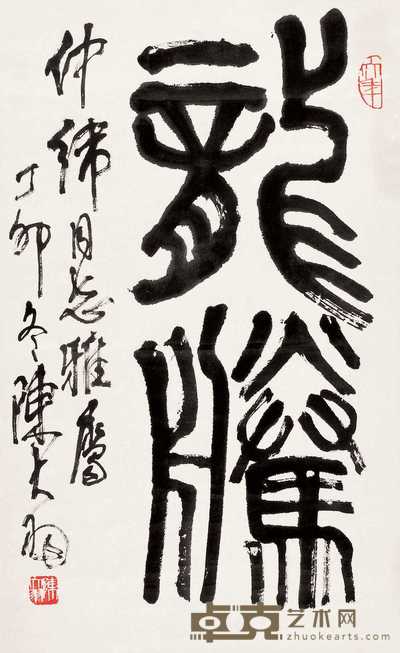 龍騰
仲緯同志雅屬
丁卯冬陳大羽
卓克艺术网
zhuokearts.com